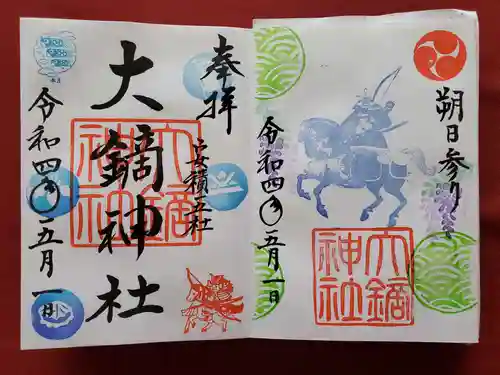 朔日参り
大鏑神社
令和四年五月一日
奉拝
安積五社
大鏑神社
大鏑神社
令和四年五月一日